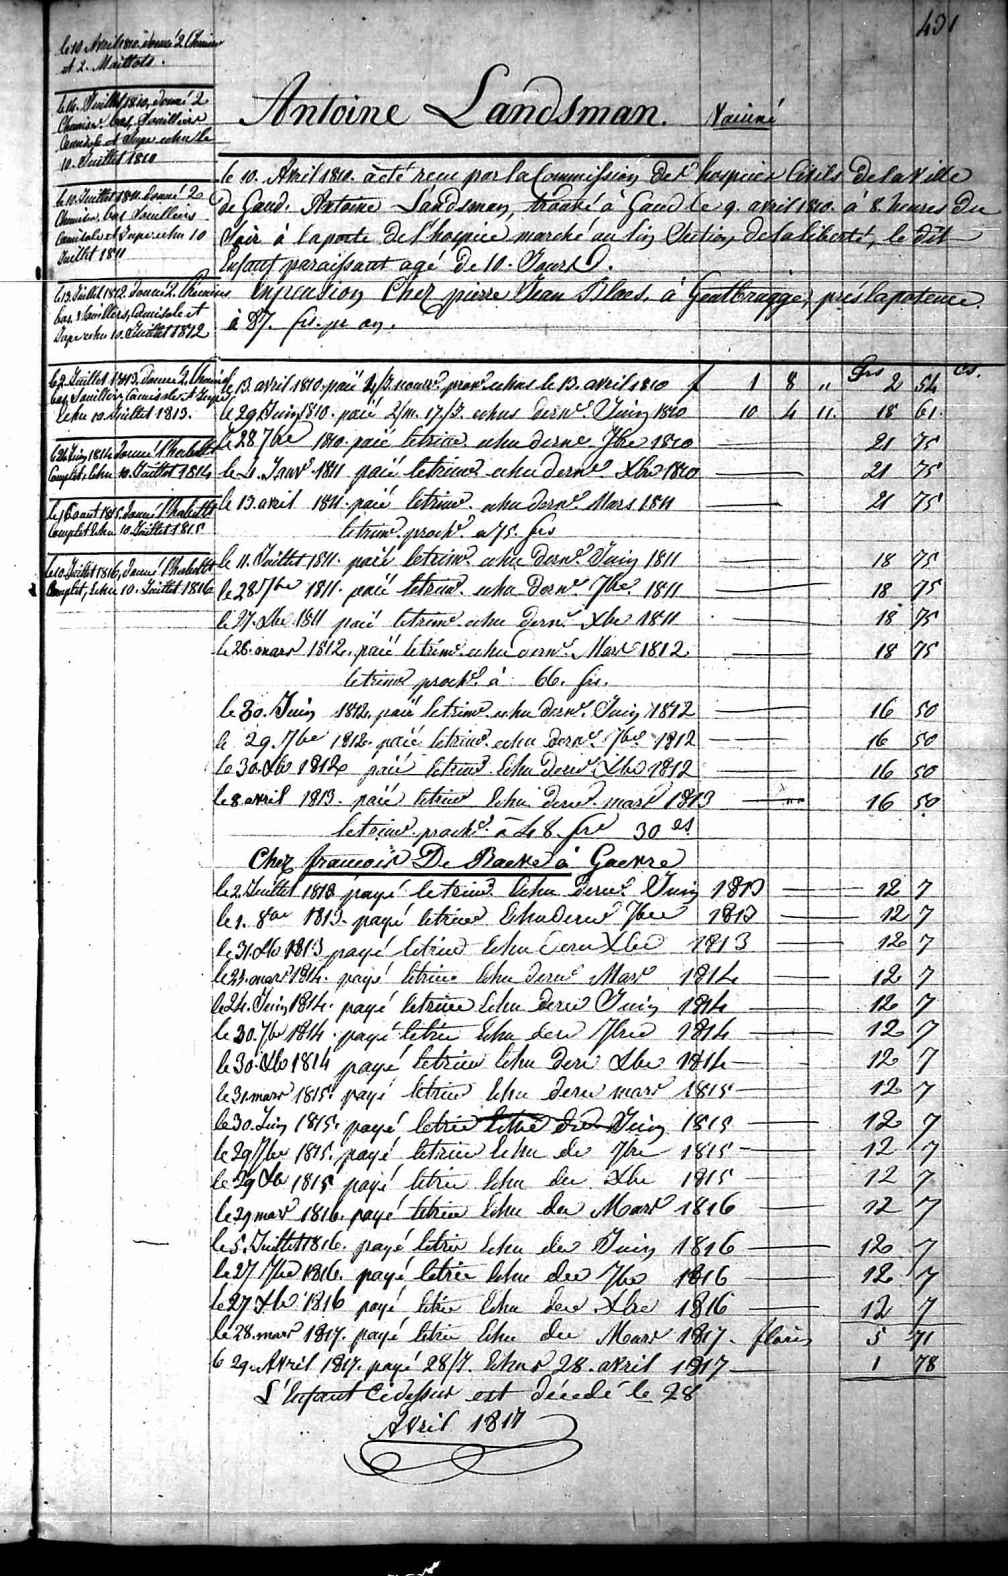 431
le 10 Avril 1810 donné 2 Chemises
et 2. Maillots.
le 14. Juillet 1810, donné 2
Chemises bas, Souilliers
Camisole et Jupe echu le
10. Juillet 1810
le 10 Juillet 1811 donné 2
Chemises, bas Souilliers
Camisole et Jupe echu 10
Juillet 1811
le 13 Juillet 1812. donné 2. Chemises
bas, Souilliers, Camisole et
Jupe echu 10. Juillet 1812
le 2. Juillet 1813, donné 2. Chemises
bas, Souilliers, Camisole et Jupe
echu 10 Juillet 1813.
Juin 1814 donné l'habillt
Complet, Echu 10. Juillet 1814
le 16 aout 1815, donné l'habillt
Complet Echu 10 Juillet 1815
le 10 Juillet 1816, donné l'habillt
Complet, Echu 10. Juillet 1816
Antoine Landsman. Vaciné
le 10. Avril 1810. a été recu par la Commission des hospices Civils de la Ville
de Gand. Antoine Landsman, trouvé à Gand le 9. avril 1810. à 8. heures du
Soir à la porte de l'hospice marché au lin Section de la liberté, le dit
Enfant paraissant agé de 10. Jours.
En pension Chez pierre Jean Bloes. à Gentbrugge, prés la potence
à 87. frs. pr an.
frs cs.
le 13 avril 1810. paié echus le 13. avril 1810 f 1 8 " 2 54
le 29 Juin 1810. paié 2/m. 17/J. echus dernr. Juin 1810 10 4 11. 18 61.
le 28 7bre 1810. paié le trimr echu dernr 7bre 1810 21 75
le 4. Janvr 1811 paié le trimr echu dernr Xbre 1810 21 75
le 13 avril 1811. paié le trimr. echu dernr. Mars 1811 21 75
le trimr. proche. a 75. frs
le 11. Juillet 1811. paié le trimr. echu dernr. Juin 1811 18 75
le 28 7bre 1811. paié le trimr. echu dernr. 7bre. 1811 18 75
le 27. Xbre 1811 paié le trimr. echu dernr. Xbre 1811 18 75
le 28. mars 1812. paié le trimr. echu dernr. Mars 1812 18 75
le trimr proche. à 66. frs.
le 30. Juin 1812, paié le trimr. echu dernr. Juin 1812 16 50
le 29. 7bre 1812. paié le trimr. echu dernr. 7bre 1812 16 50
le 30. Xbre 1812 paié le trimr. Echu dernr. Xbre 1812 16 50
le 8 avril 1813. paié le trimr Echu dernr. mars 1813 16 50
le trimr. proche. à 48 frs 30 cs
Chez francois De Baeke à Gavre
le 2. Juillet 1813 payé le trimr. Echu dernr. Juin 1813 12 7
le 1. 8bre 1813. payé le trimr Echu dernr 7bre 1813 12 7
le 31. Xbre 1813 payé le trimr Echu dernr Xbre 1813 12 7
le 23. mars 1814. payé le trimr Echu dernr Mars 1814 12 7
le 24. Juin 1814. payé le trimr Echu dernr Juin 1814 12 7
le 30. 7bre 1814. payé le trimr Echu dern 7bre 1814 12 7
le 30. Xbre 1814 payé le trimr Echu dern Xbre 1814 12 7
le 31. mars 1815. payé le trimr Echu dern mars 1815 12 7
le 30. Juin 1815. payé le trimr Echu der Juin 1815 12 7
le 29 7bre 1815. payé le trimr Echu de 7bre 1815 12 7
le 29 Xbre 1815 payé le trimr Echu der Xbre 1815 12 7
le 29 mars 1816. payé le trimr Echu der Mars 1816 12 7
le 5. Juillet 1816. payé le trimr Echu der Juin 1816 12 7
le 27 7bre 1816. payé le trimr Echu der 7bre 1816 12 7
le 27 Xbre 1816 payé le trimr Echu der Xbre 1816 12 7
le 28. mars 1817. payé le trimr Echu der Mars 1817. florins 5 71
le 29. Avril 1817. payé 28/J. Echus 28. avril 1817 1 78
L'Enfant Cidessus est décédé le 28
Avril 1817